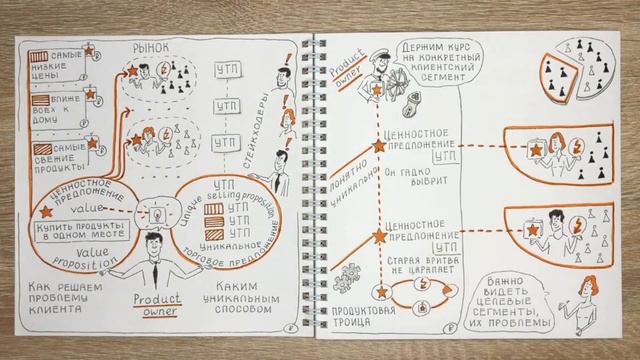 РЫНОК
САМЫЕ
НИЗКИЕ
ЦЕНЫ
БЛИЖЕ
ВСЕХ К
ДОМУ
САМЫЕ
СВЕЖИЕ
ПРОДУКТЫ
УТП
УТП
УТП
СТЕЙКХОЛДЕРЫ
ЦЕННОСТНОЕ
ПРЕДЛОЖЕНИЕ
value
КУПИТЬ ПРОДУКТЫ
В ОДНОМ МЕСТЕ
Value
proposition
УТП
Unique selling proposition
УТП
УТП
УТП
УНИКАЛЬНОЕ
ТОРГОВОЕ ПРЕДЛОЖЕНИЕ
КАК РЕШАЕМ
ПРОБЛЕМУ
КЛИЕНТА
Product
owner
КАКИМ
УНИКАЛЬНЫМ
СПОСОБОМ
Product
owner
ДЕРЖИМ КУРС
НА КОНКРЕТНЫЙ
КЛИЕНТСКИЙ
СЕГМЕНТ
ЦЕННОСТНОЕ
ПРЕДЛОЖЕНИЕ
УТП
ПОНЯТНО
УНИКАЛЬНО
ОН ГАДКО
ВЫБРИТ
ЦЕННОСТНОЕ
ПРЕДЛОЖЕНИЕ
УТП
СТАРАЯ БРИТВА
НЕ ЦАРАПАЕТ
ПРОДУКТОВАЯ
ТРОИЦА
ВАЖНО
ВИДЕТЬ
ЦЕЛЕВЫЕ
СЕГМЕНТЫ,
ИХ ПРОБЛЕМЫ